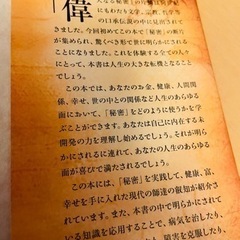 「偉
大なる秘密」の片鱗は何世紀
にもわたり文学、宗教、哲学等
の口承伝説の中に見出されて
きました。今回初めてこの「秘密」の断片
が集められ、驚くべき形で世に明らかにされる
ことになりました。これを体験する全ての人さ
にとって、本書は人生の大きな転機となること
でしょう。
この本では、あなたのお金、健康、人間関
係、幸せ、世の中との関係など人生のあらゆる
面において、「秘密」をどのように使うかを学
ぶことができます。あなたは自己に内在する未
開発の力を理解し始めるでしょう。それが明ら
かにされるに連れて、あなたの人生のあらゆる
面が喜びで満たされるでしょう。
この本には、「秘密」を実践して、健康、富、
幸せを手に入れた現代の師達の叡知が紹介さ
れています。また、本書の中で明らかにされて
いる知識を応用することで、病気を治したり、
障害を克服したり、